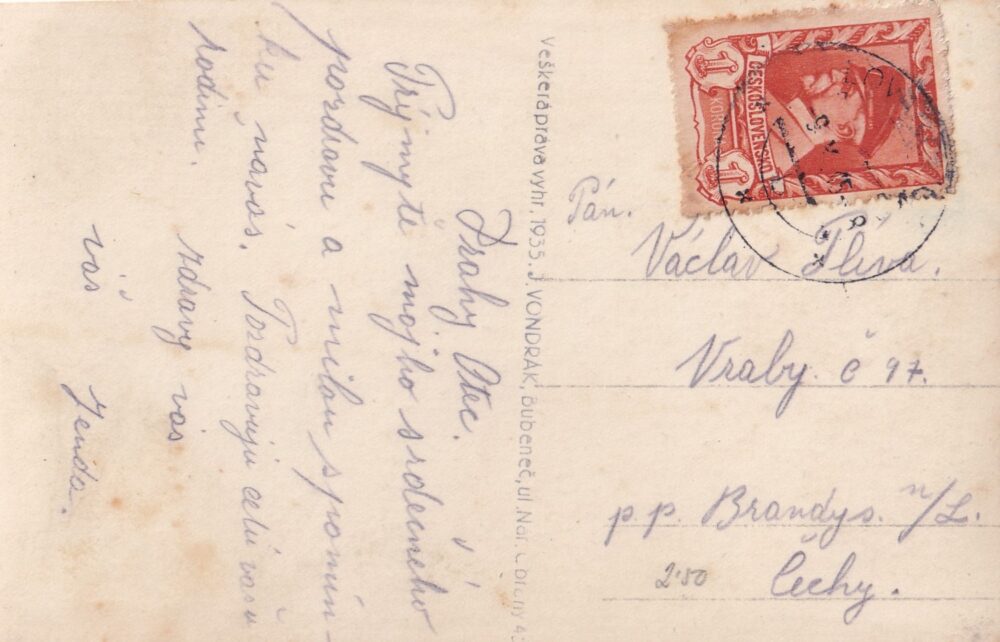 Drahy Otec.
Prÿmyte mojho srdecneho
pozdravu a milou spomín-
ku na vás. Pozdravuju celú vašu
rodinu.
zdravy vás
váš Jenda.
Veškerá práva vyhr. 1935. J. VONDRÁK, Bubeneč, ul. Nár.
1 ČESKOSLOVENSKO 1
Pán.
Václav Plíva.
Vraby č 97.
p.p. Brandys. n/L.
Čechy.
2·50